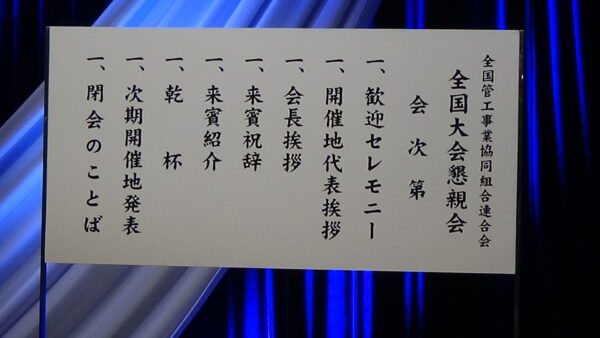 全国管工事業協同組合連合会
全国大会懇親会
会次第
一、歓迎セレモニー
一、開催地代表挨拶
一、会長挨拶
一、来賓祝辞
一、来賓紹介
一、乾杯
一、次期開催地発表
一、閉会のことば